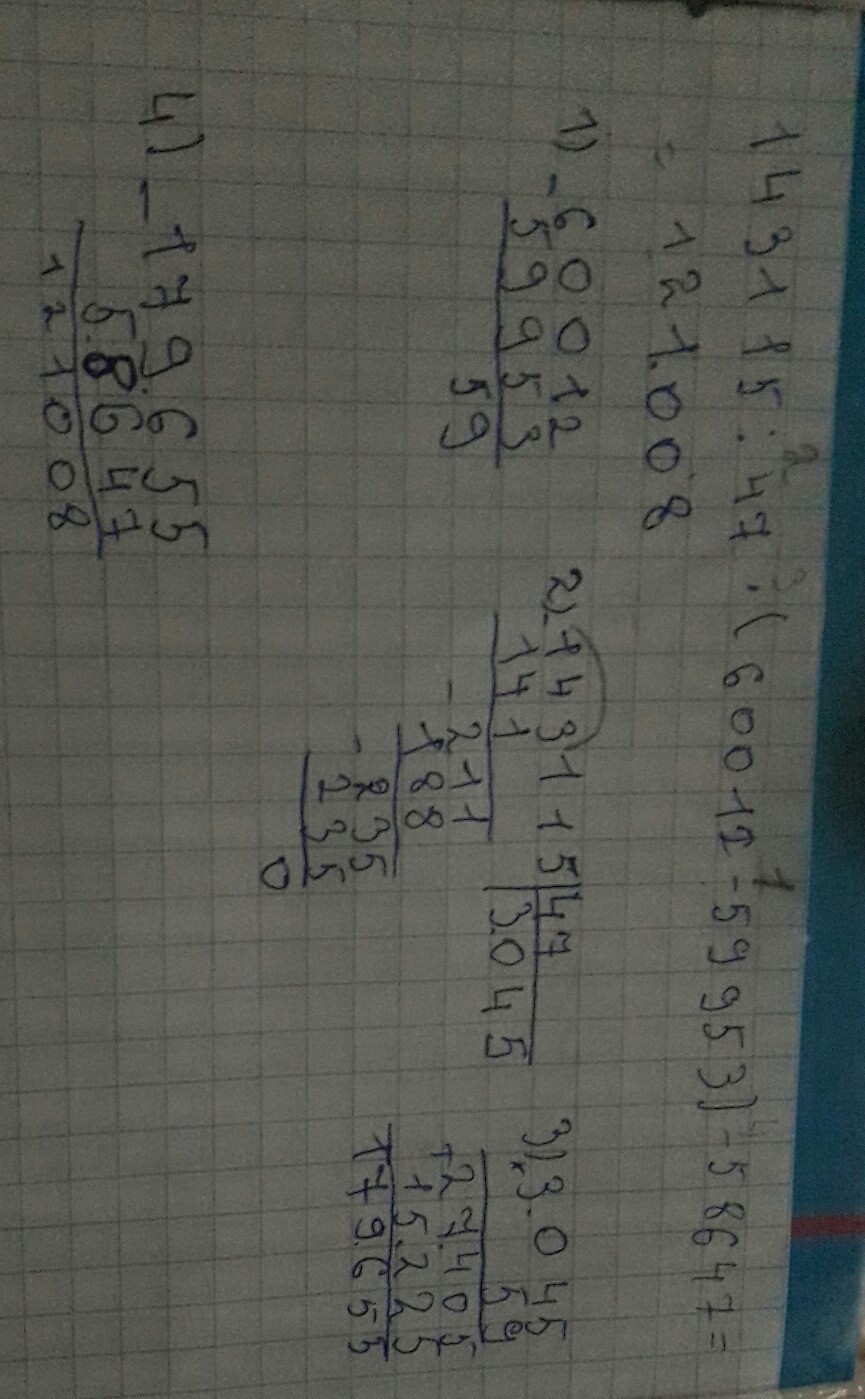 143115 : 47 · (60012 - 59953) - 58647 =
2 3 1 4
= 121.008
1) - 60012
59953
59
2) - 143115 | 47
141 3.045
- 211
188
- 235
235
0
3) × 3.045
59
+ 27.405
15.225
179.655
4) - 179.655
58.647
121.008